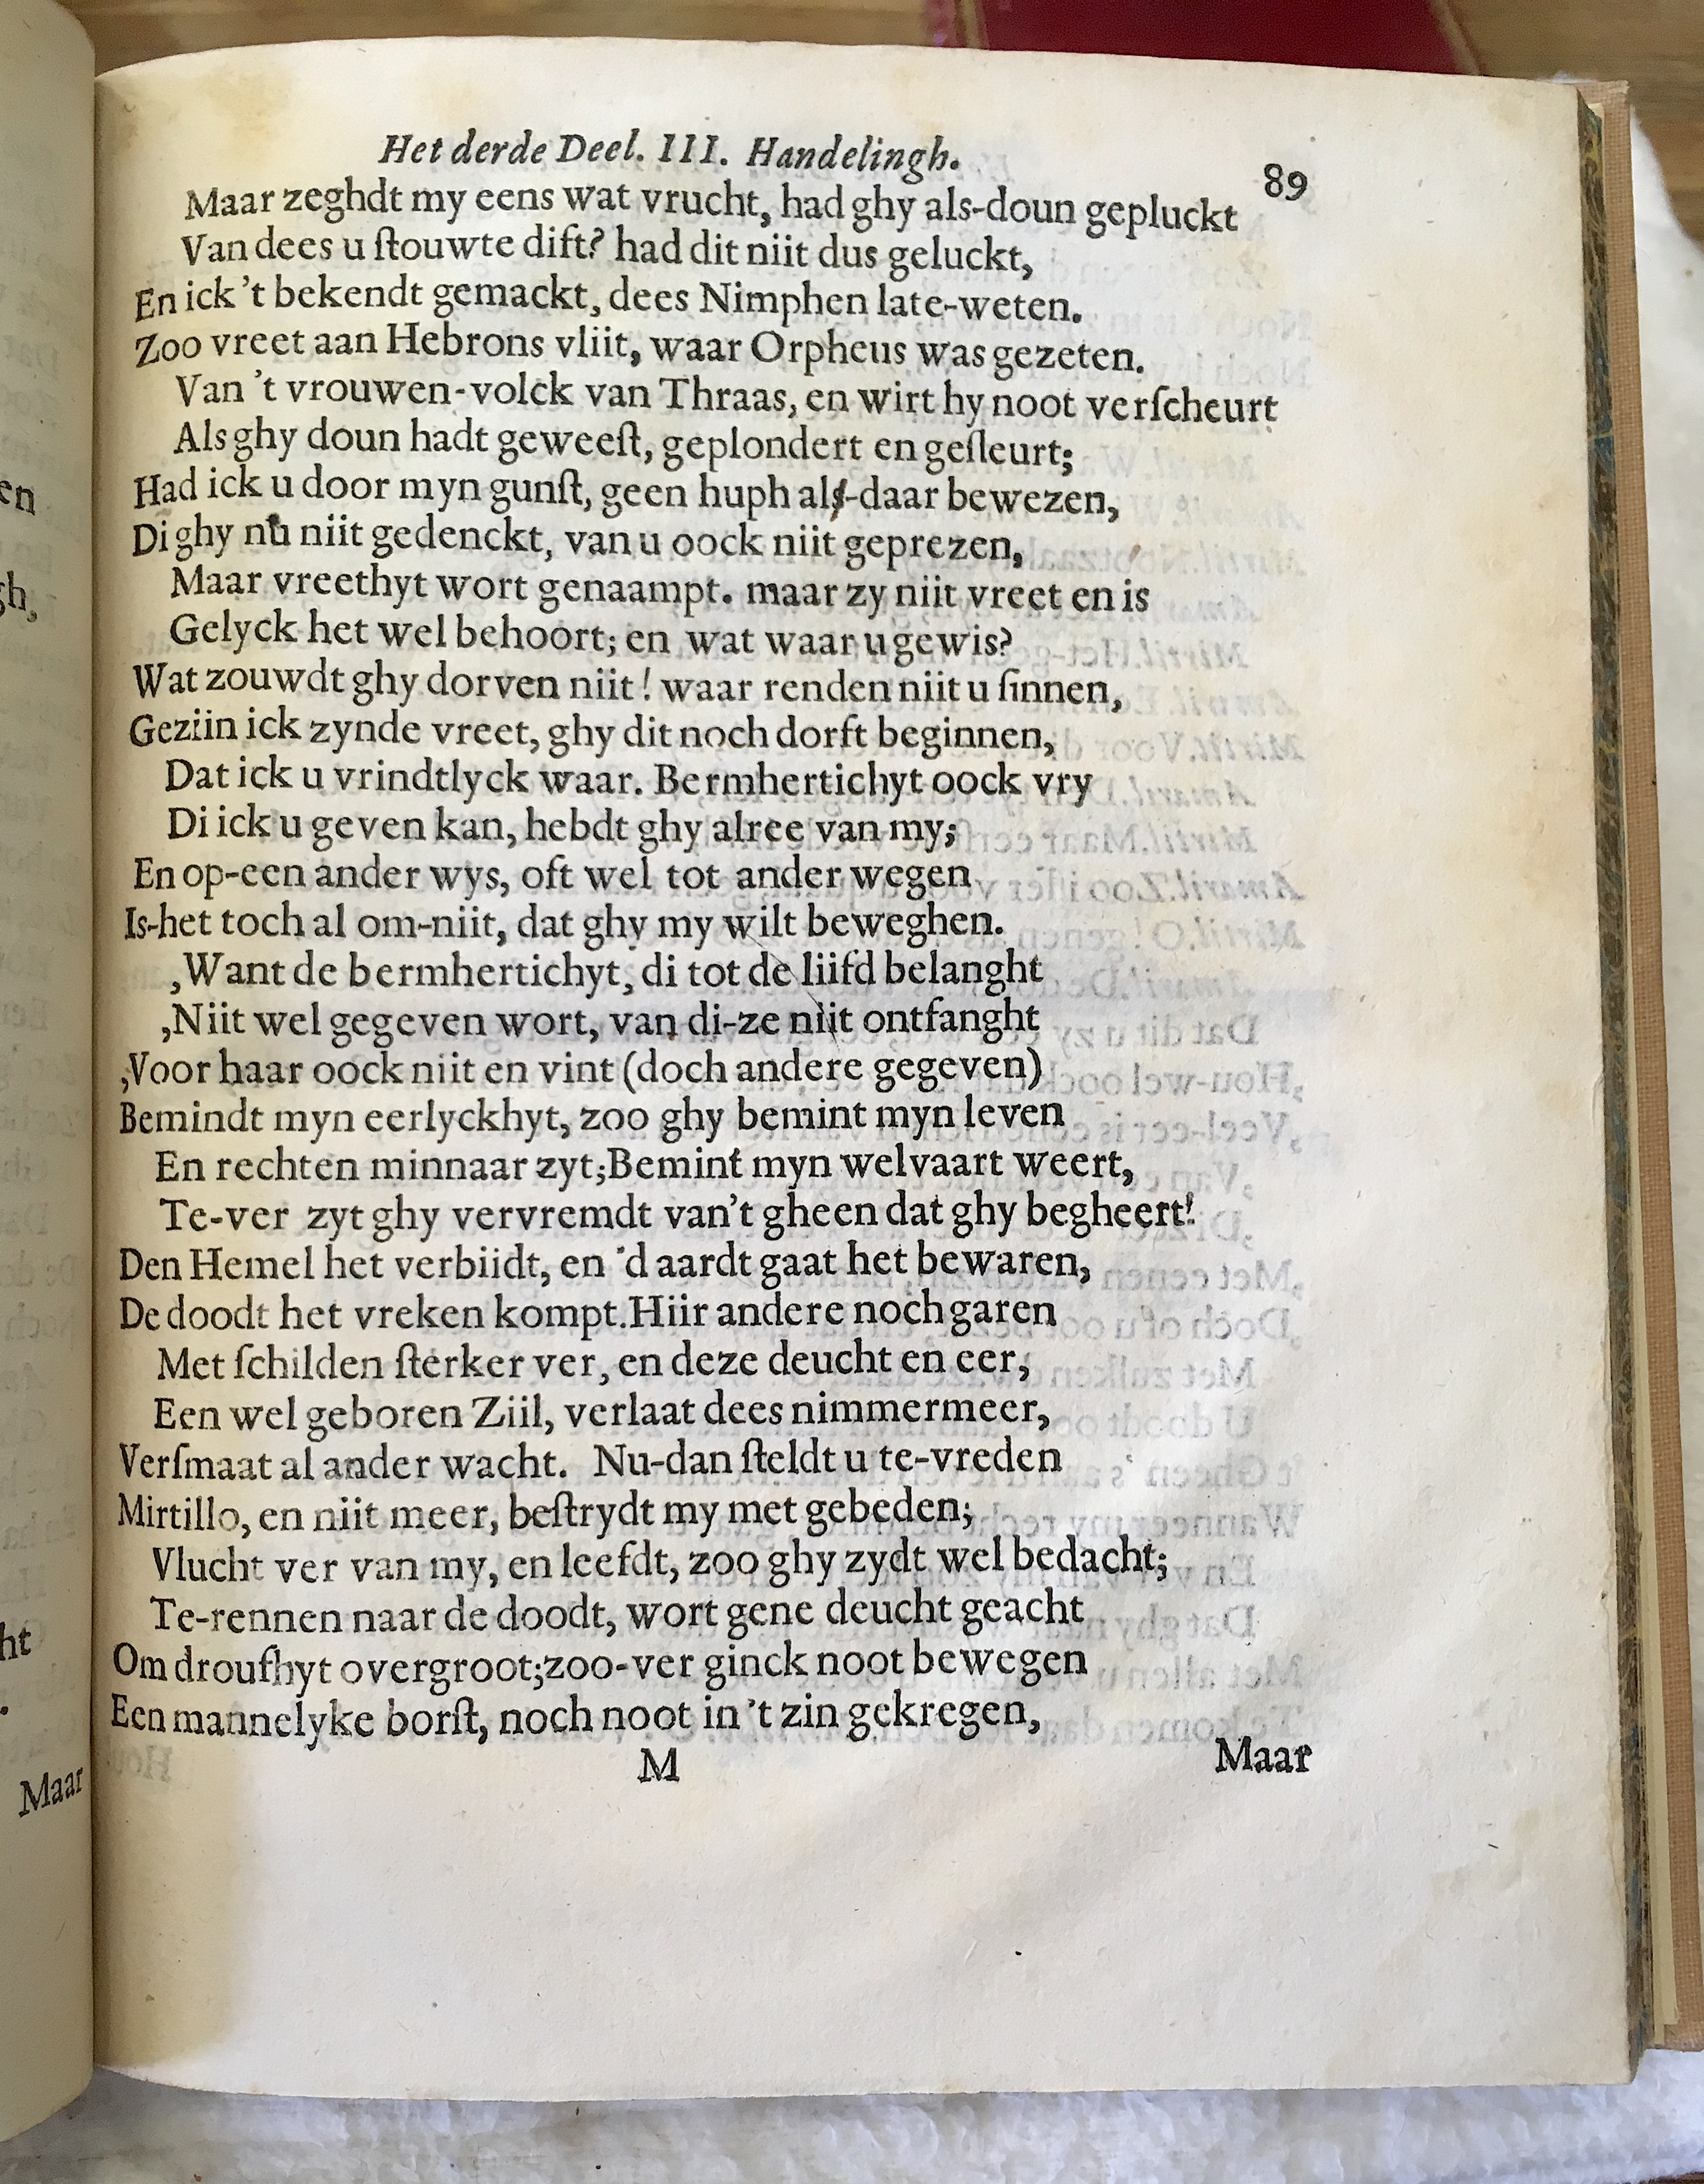 Het derde Deel. III. Handelingh.
89
Maar zeghdt my eens wat vrucht, had ghy als-doun gepluckt
Van dees u ſtouwte dift? had dit niit dus geluckt,
En ick 't bekendt gemackt, dees Nimphen late-weten.
Zoo vreet aan Hebrons vliit, waar Orpheus was gezeten.
Van 't vrouwen-volck van Thraas, en wirt hy noot verſcheurt
Als ghy doun hadt geweeſt, geplondert en geſleurt;
Had ick u door myn gunſt, geen huph alſ-daar bewezen,
Di ghy nu niit gedenckt, van u oock niit geprezen,
Maar vreethyt wort genaampt. maar zy niit vreet en is
Gelyck het wel behoort; en wat waar u gewis?
Wat zouwdt ghy dorven niit! waar renden niit u ſinnen,
Geziin ick zynde vreet, ghy dit noch dorft beginnen,
Dat ick u vrindtlyck waar. Bermhertichyt oock vry
Di ick u geven kan, hebdt ghy alree van my;
En op-een ander wys, oft wel tot ander wegen
Is-het toch al om-niit, dat ghy my wilt beweghen.
,Want de bermhertichyt, di tot de liifd belanght
,Niit wel gegeven wort, van di-ze niit ontfanght
,Voor haar oock niit en vint (doch andere gegeven)
Bemindt myn eerlyckhyt, zoo ghy bemint myn leven
En rechten minnaar zyt;Bemint myn welvaart weert,
Te-ver zyt ghy vervremdt van't gheen dat ghy begheert!
Den Hemel het verbiidt, en 'd aardt gaat het bewaren,
De doodt het vreken kompt.Hiir andere noch garen
Met ſchilden ſterker ver, en deze deucht en eer,
Een wel geboren Ziil, verlaat dees nimmermeer,
Verſmaat al ander wacht. Nu-dan ſteldt u te-vreden
Mirtillo, en niit meer, beſtrydt my met gebeden;
Vlucht ver van my, en leefdt, zoo ghy zydt wel bedacht;
Te-rennen naar de doodt, wort gene deucht geacht
Om droufhyt overgroot;zoo-ver ginck noot bewegen
Een mannelyke borſt, noch noot in 't zin gekregen,
M
Maar
en
gh,
ht
Maar